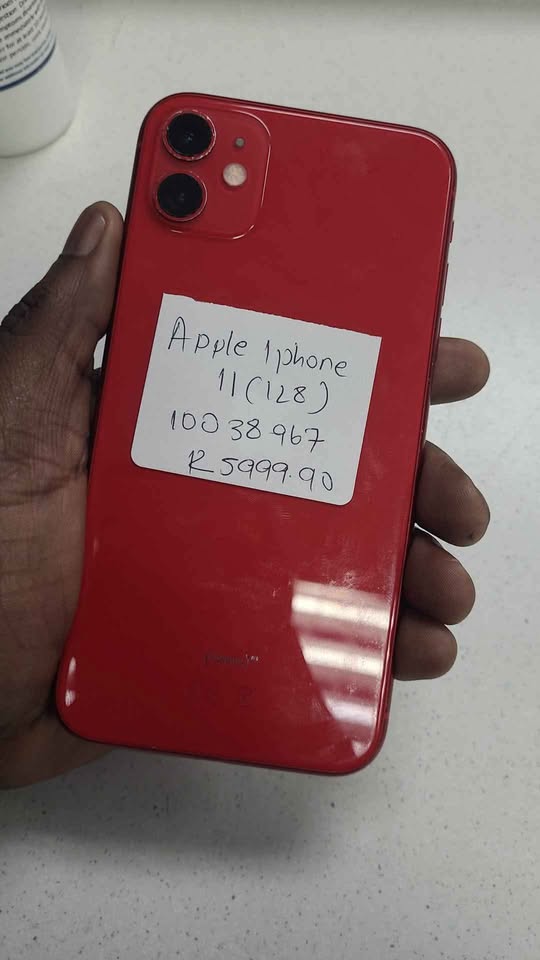 Apple iphone
11 (128)
10038967
R5999.90